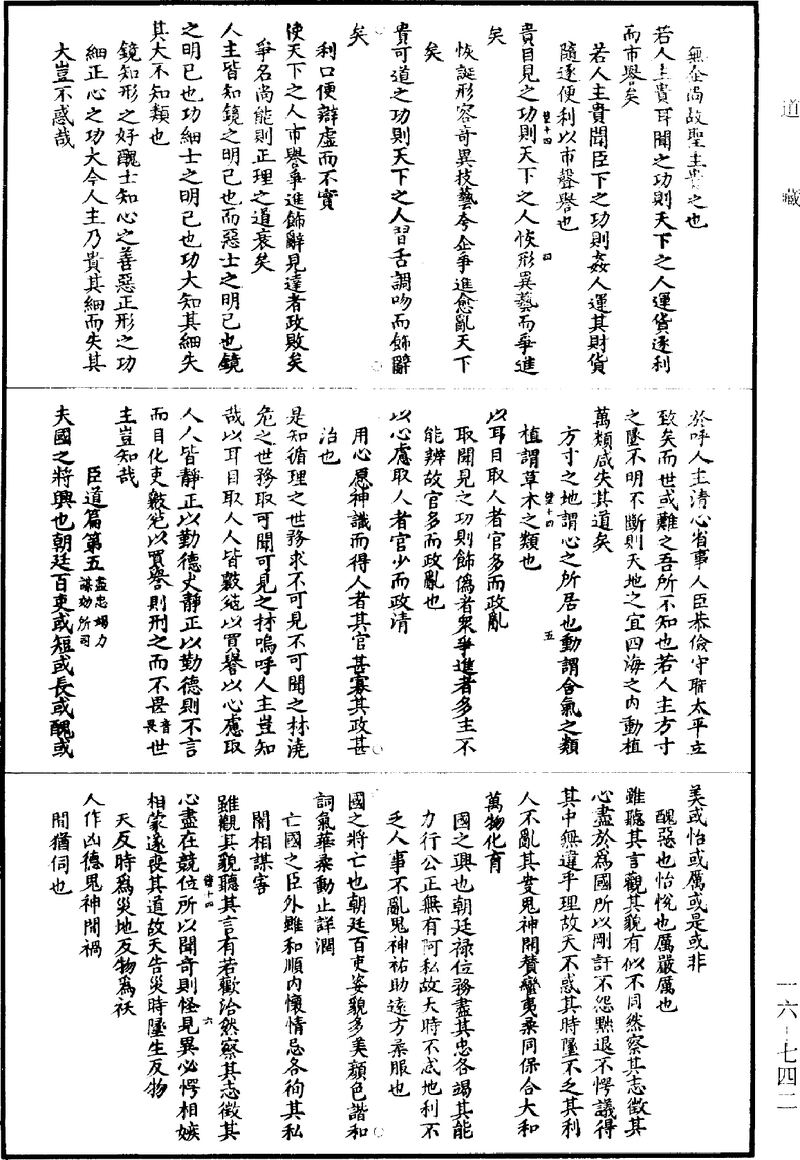 道藏
無企尚故聖主貴之也
若人主貴耳聞之功則天下之人運貨逐利
而市譽矣
若人主貴聞臣下之功則姦人運其財貨
隨逐便利以市聲譽也
貴目見之功則天下之人恢形異藝而爭進
矣
恢誕形容奇異技藝夸企爭進愈亂天下
矣
貴可道之功則天下之人習舌調吻而飾辭
矣
利口便辯虛而不實
使天下之人市譽爭進飾辭見達者政敗矣
爭名尚能則正理之道衰矣
人主皆知鏡之明己也而惡士之明己也鏡
之明己也功細士之明己也功大知其細失
其大不知類也
鏡知形之好醜士知心之善惡正形之功
細正心之功大今人主乃貴其細而失其
大豈不惑哉
於呼人主清心省事人臣恭儉守職太平立
致矣而世或難之吾所不知也若人主方寸
之墜不明不斷則天地之宜四海之內動植
萬類咸失其道矣
方寸之地謂心之所居也動謂含氣之類
植謂草木之類也
以耳目取人者官多而政亂
取聞見之功則飾偽者衆爭進者多主不
能辨故官多而政亂也
以心慮取人者官少而政清
用心愿神識而得人者其官甚寡其政甚
治也
是知循理之世務求不可見不可聞之材澆
危之世務取可聞可見之材嗚呼人主豈知
哉以耳目取人人皆敷績以買譽以心慮取
人人皆靜正以勤德史靜正以勤德則不言
而自化吏敷績以買譽則刑之而不畏音畏世
主豈知哉
臣道篇第五盡忠竭力謀効所司
夫國之將興也朝廷百吏或短或長或醜或
美或怡或厲或是或非
醜惡也怡悅也厲嚴厲也
雖聽其言觀其貌有似不同然察其志徵其
心盡於爲國所以剛訐不怨黜退不愕議得
其中無違乎理故天不惑其時墜不乏其利
人不亂其事鬼神開贊蠻夷柔同保合大和
萬物化育
國之興也朝廷祿位務盡其忠各竭其能
力行公正無有阿私故天時不忒地利不
乏人事不亂鬼神祐助遠方柔服也
國之將亡也朝廷百吏姿貌多美顏色諧和
詞氣華柔動止詳潤
亡國之臣外雖和順內懷情忌各徇其私
閒相謀害
雖觀其貌聽其言有若歡洽然察其志徵其
心盡在競位所以聞奇則怪見異必愕相嫉
相蒙遂喪其道故天告災時墜生反物
天反時爲災地反物爲祅
人作凶德鬼神閒禍
閒猶伺也
一六-七四二